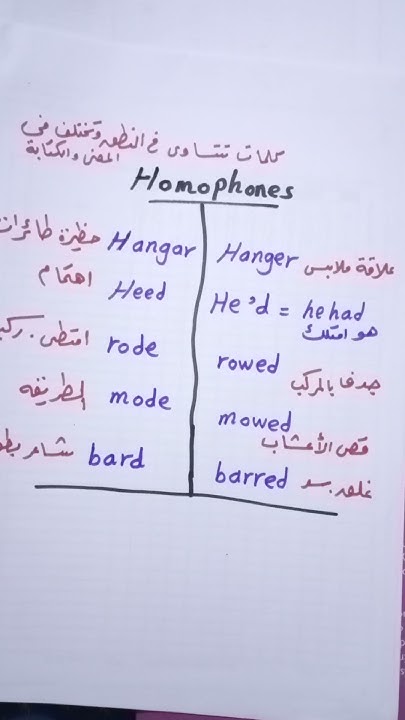 كلمات تتساوى في النطق وتختلف في
المعنى والكتابة
Homophones
Hangar حظيرة طائرات
Hanger علاقة ملابس
Heed اهتمام
He'd = he had
هو امتلك
rode امتطى. ركب
rowed
جدف بالمركب
mode الطريقة
mowed
قص الأعشاب
bard شاعر
barred غلق. سد